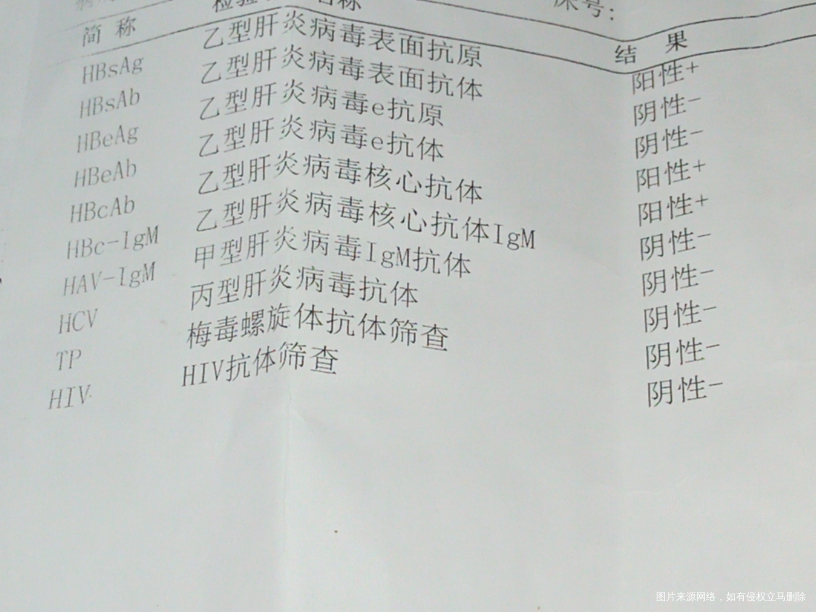 床号:
简 称 检验 名称 结 果
HBsAg 乙型肝炎病毒表面抗原 阳性+
HBsAb 乙型肝炎病毒表面抗体 阴性-
HBeAg 乙型肝炎病毒e抗原 阴性-
HBeAb 乙型肝炎病毒e抗体 阳性+
HBcAb 乙型肝炎病毒核心抗体 阳性+
HBc-IgM 乙型肝炎病毒核心抗体IgM 阴性-
HAV-lgM 甲型肝炎病毒IgM抗体 阴性-
HCV 丙型肝炎病毒抗体 阴性-
TP 梅毒螺旋体抗体筛查 阴性-
HIV HIV抗体筛查 阴性-
图片来源网络，如有侵权立马删除